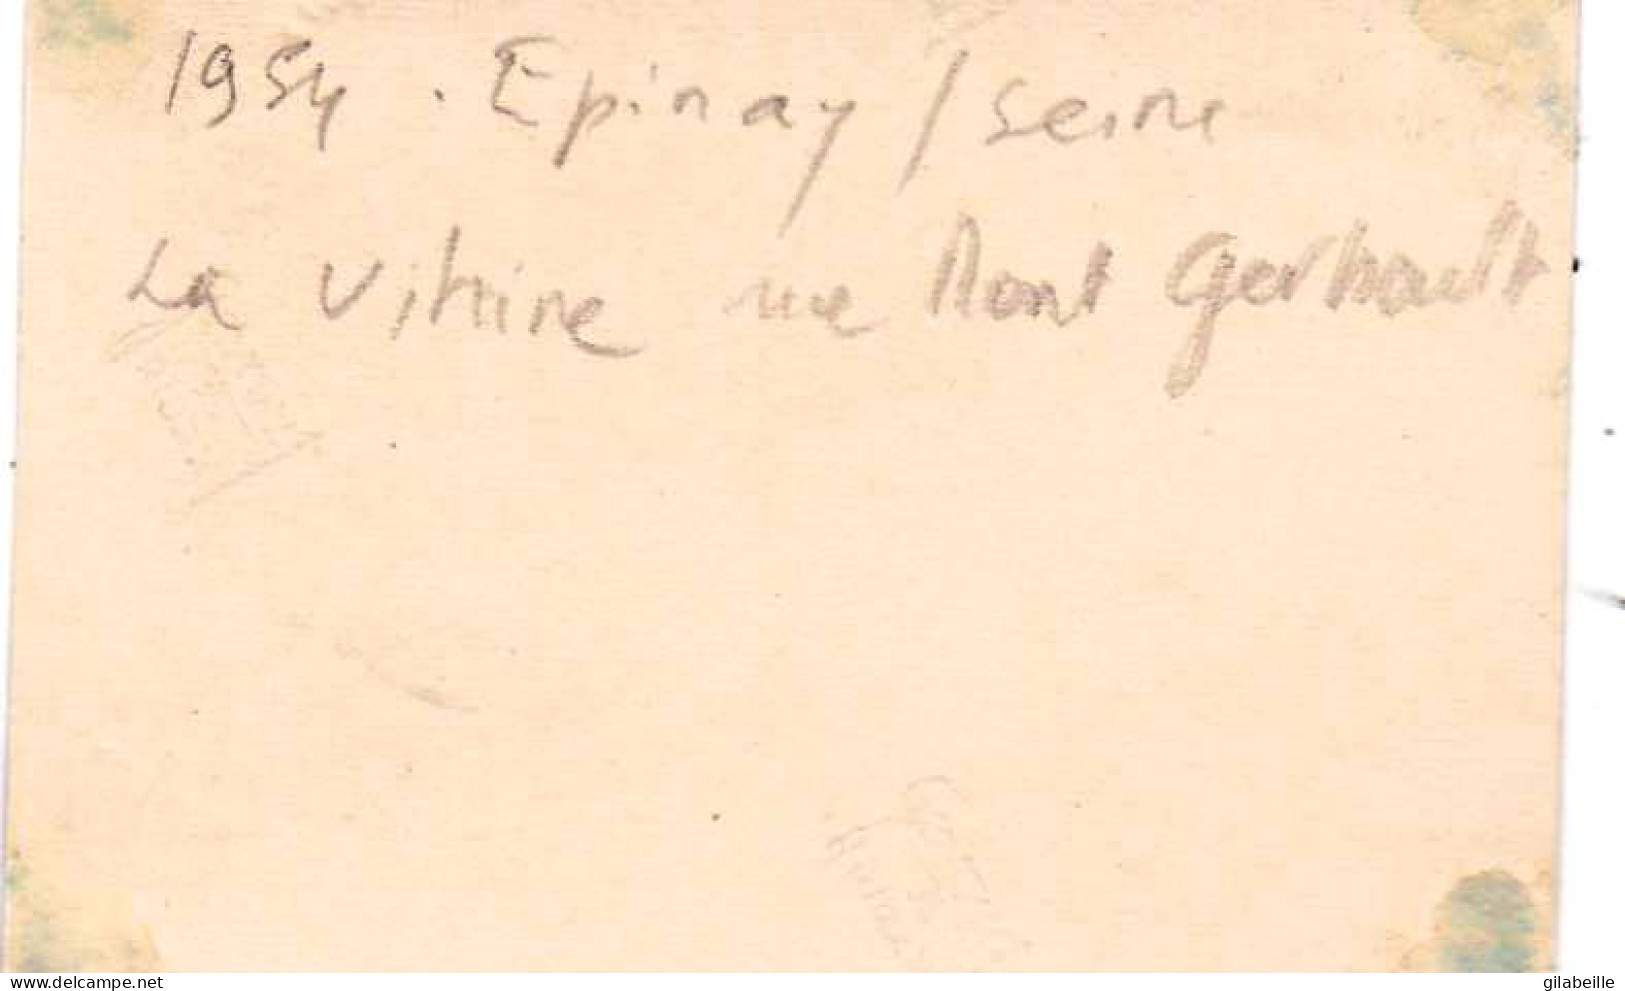 1954. Epinay / Seine
La Vitrine rue Mont Gerbault
www.delcampe.net
gilabeille